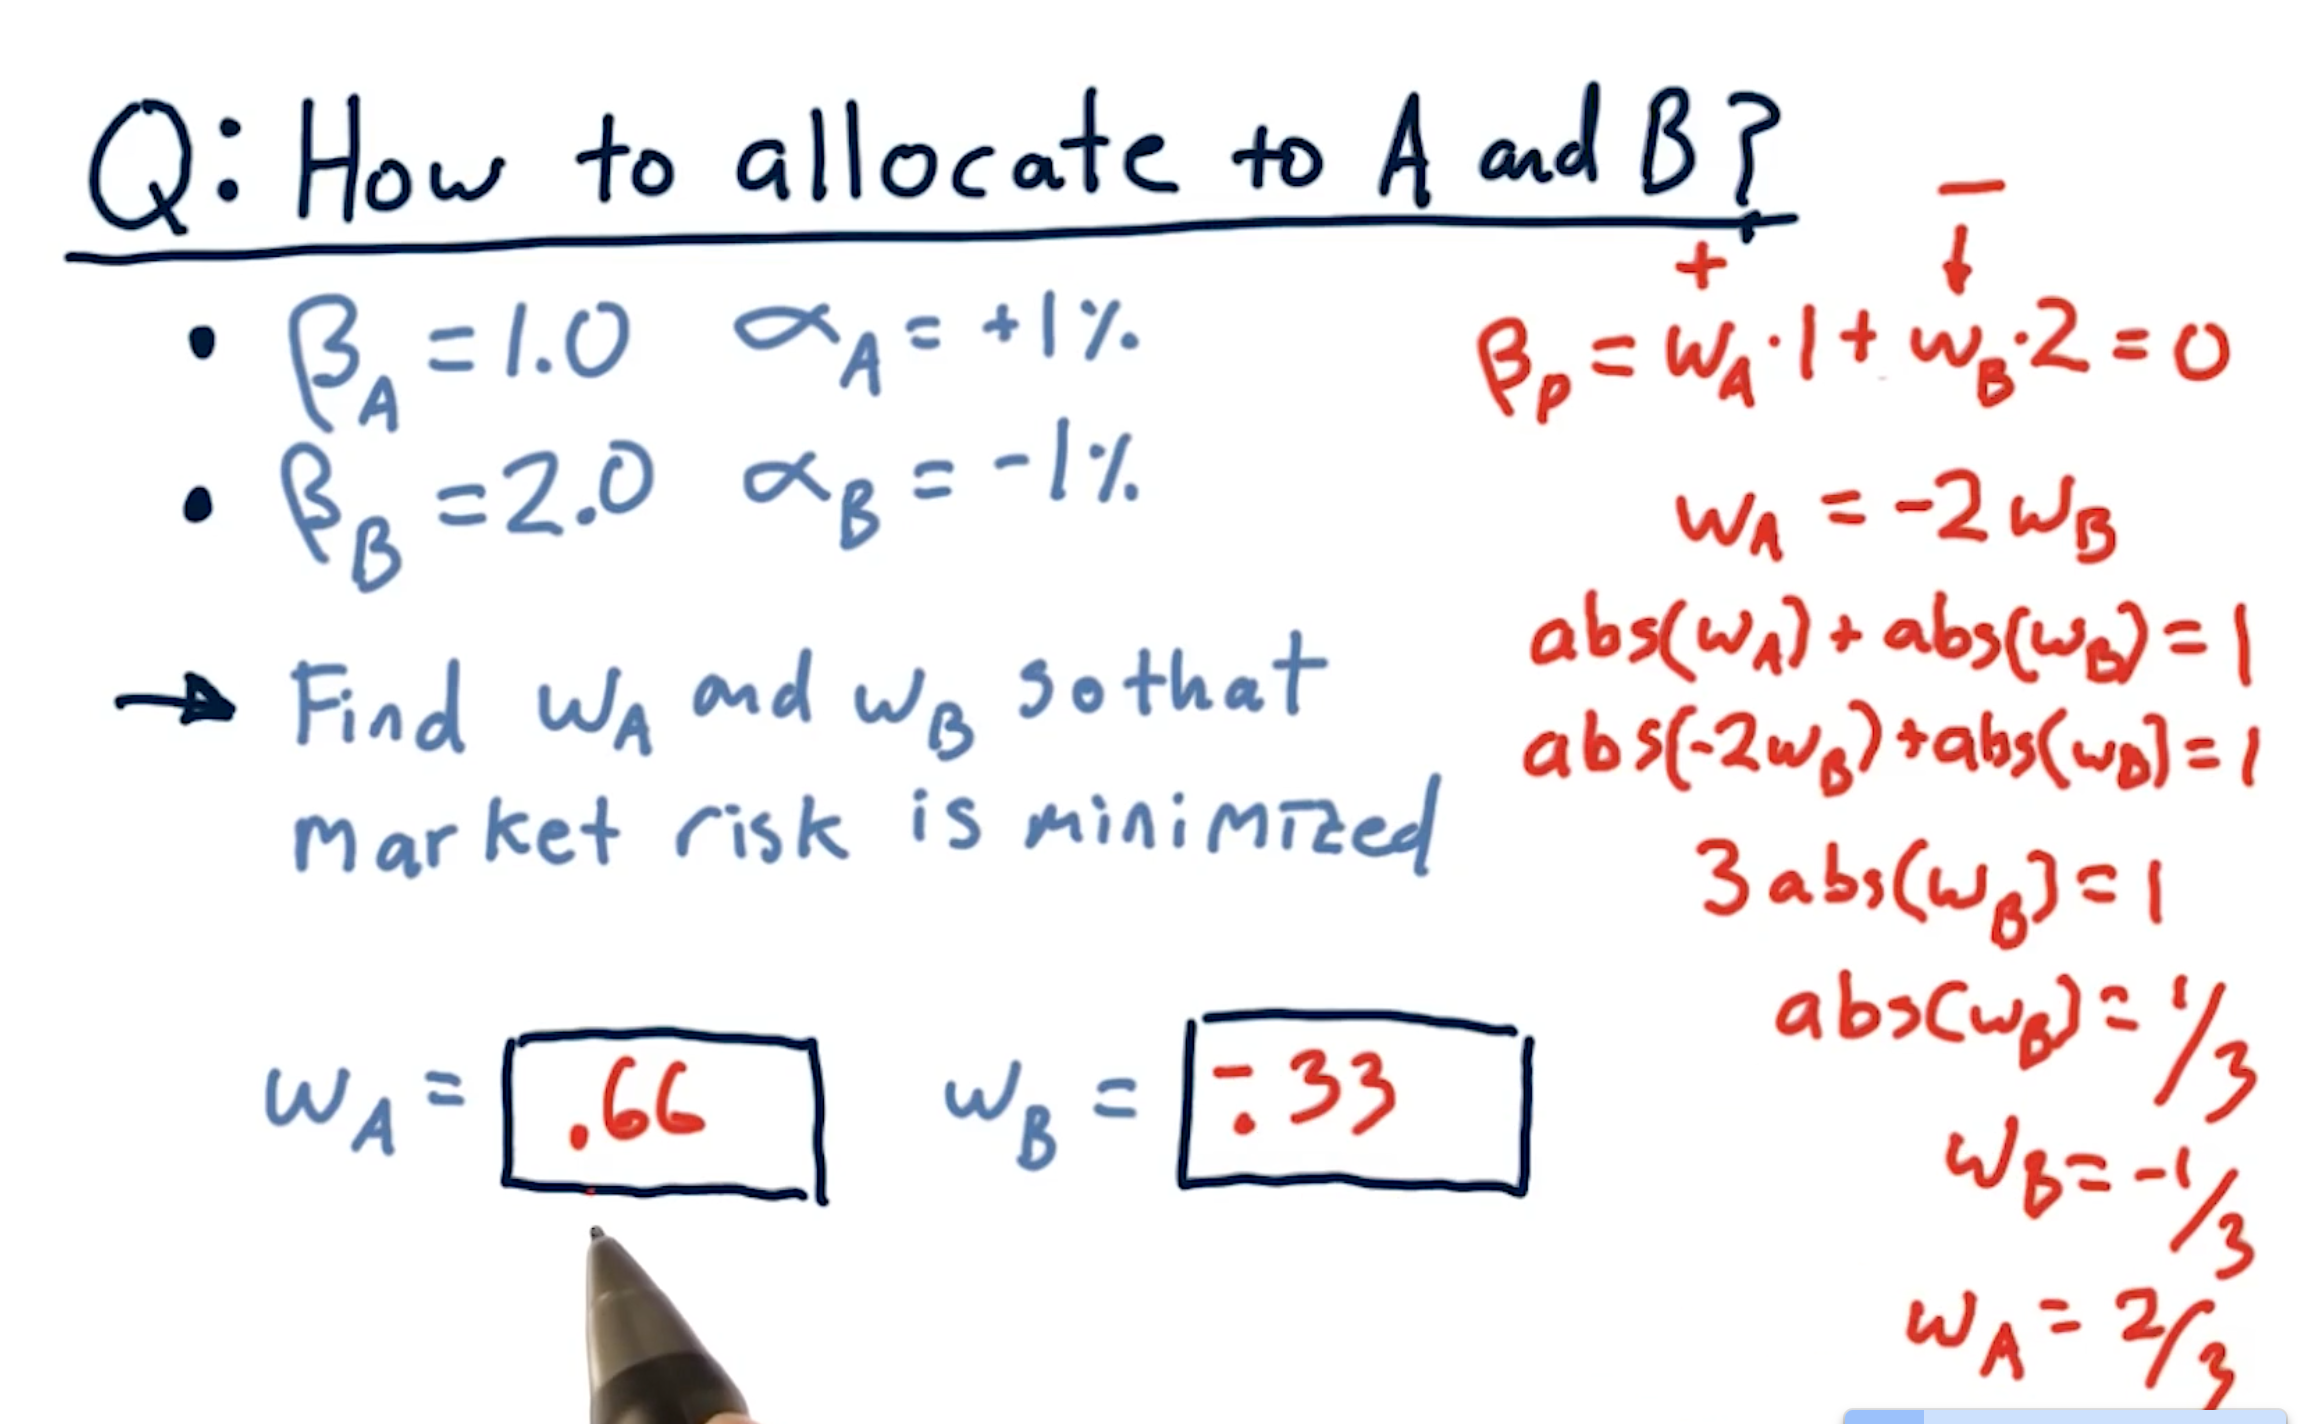 Q: How to allocate to A and B?
• β_A = 1.0 α_A = +1%
• β_B = 2.0 α_B = -1%
→ Find w_A and w_B so that
market risk is minimized
w_A = .66 w_B = -.33
+ −
↓
β_p = w_A · 1 + w_B · 2 = 0
w_A = -2 w_B
abs(w_A) + abs(w_B) = 1
abs(-2w_B) + abs(w_B) = 1
3 abs(w_B) = 1
abs(w_B) = 1/3
w_B = -1/3
w_A = 2/3